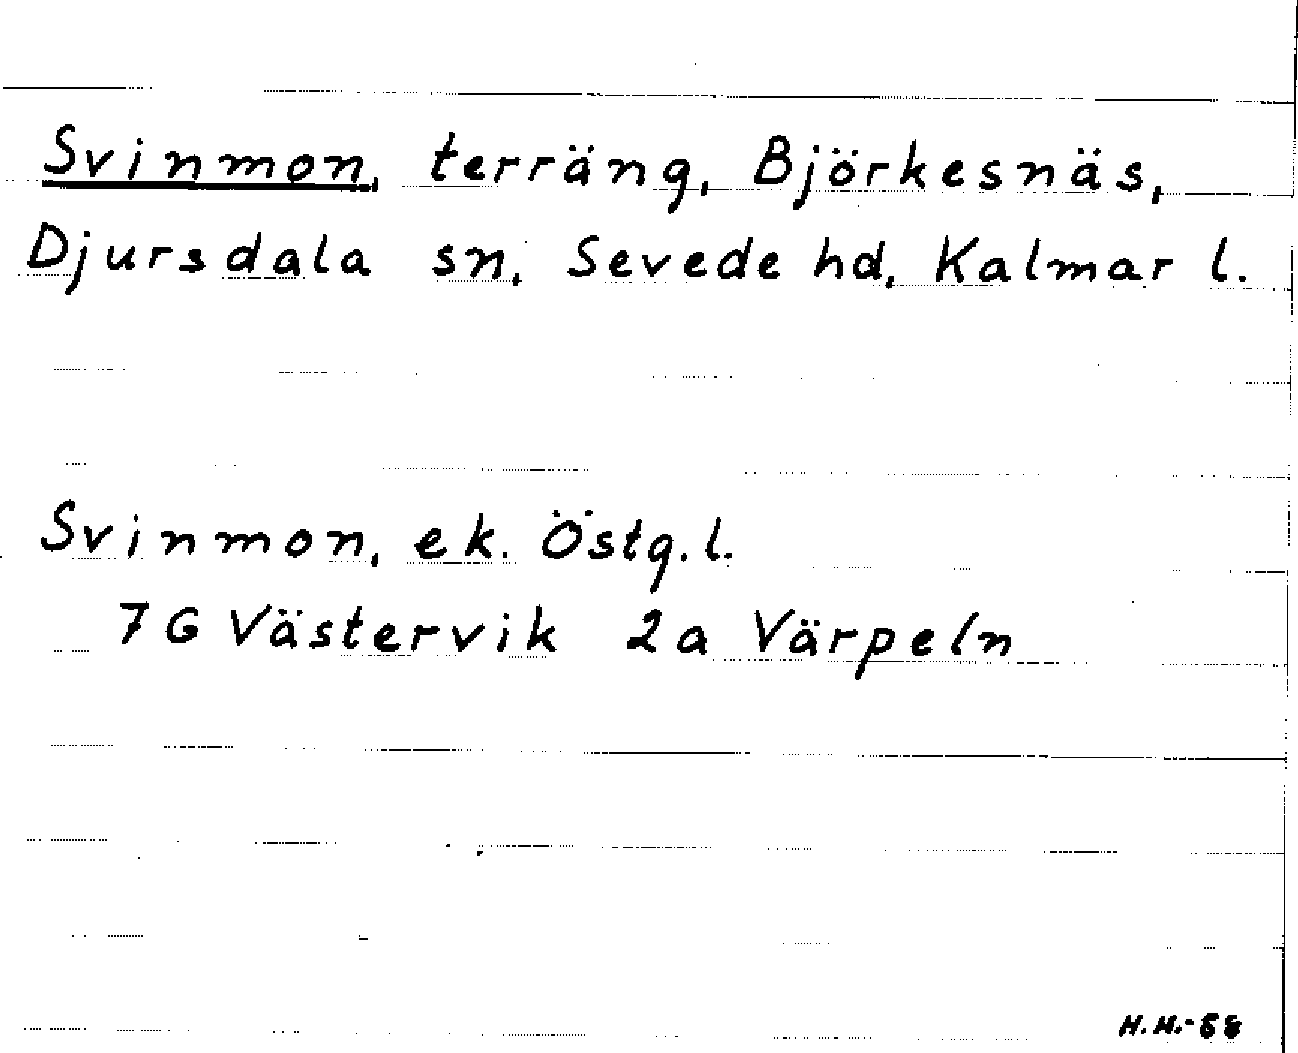 Svinmon, terräng, Björkesnäs,
Djursdala sn, Sevede hd, Kalmar l.
Svinmon, ek. Östg. l.
7 G Västervik 2a Värpeln